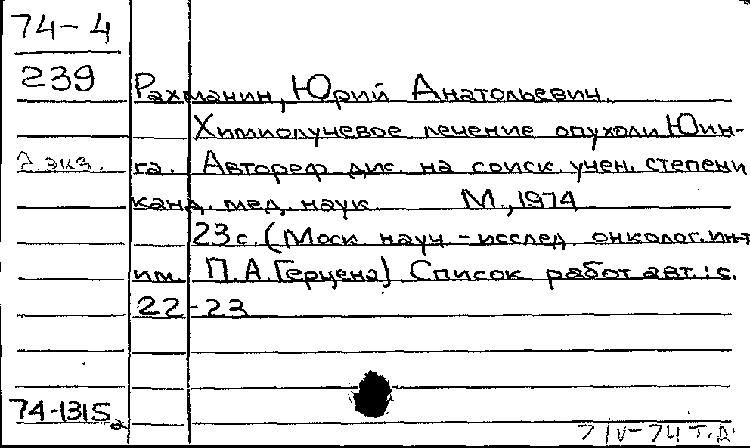 74-4
239
Рахманин, Юрий Анатольевич.
Химиолучевое лечение опухоли Юин-
2 экз.
га. Автореф дис. на соиск. учен. степени
канд. мед. наук М., 1974
23 с. (Моск науч-исслед. онколог. ин-т
им. П.А. Герцена) Список работ авт.: с.
22-23
74-1315
7/IV-74 т.д.